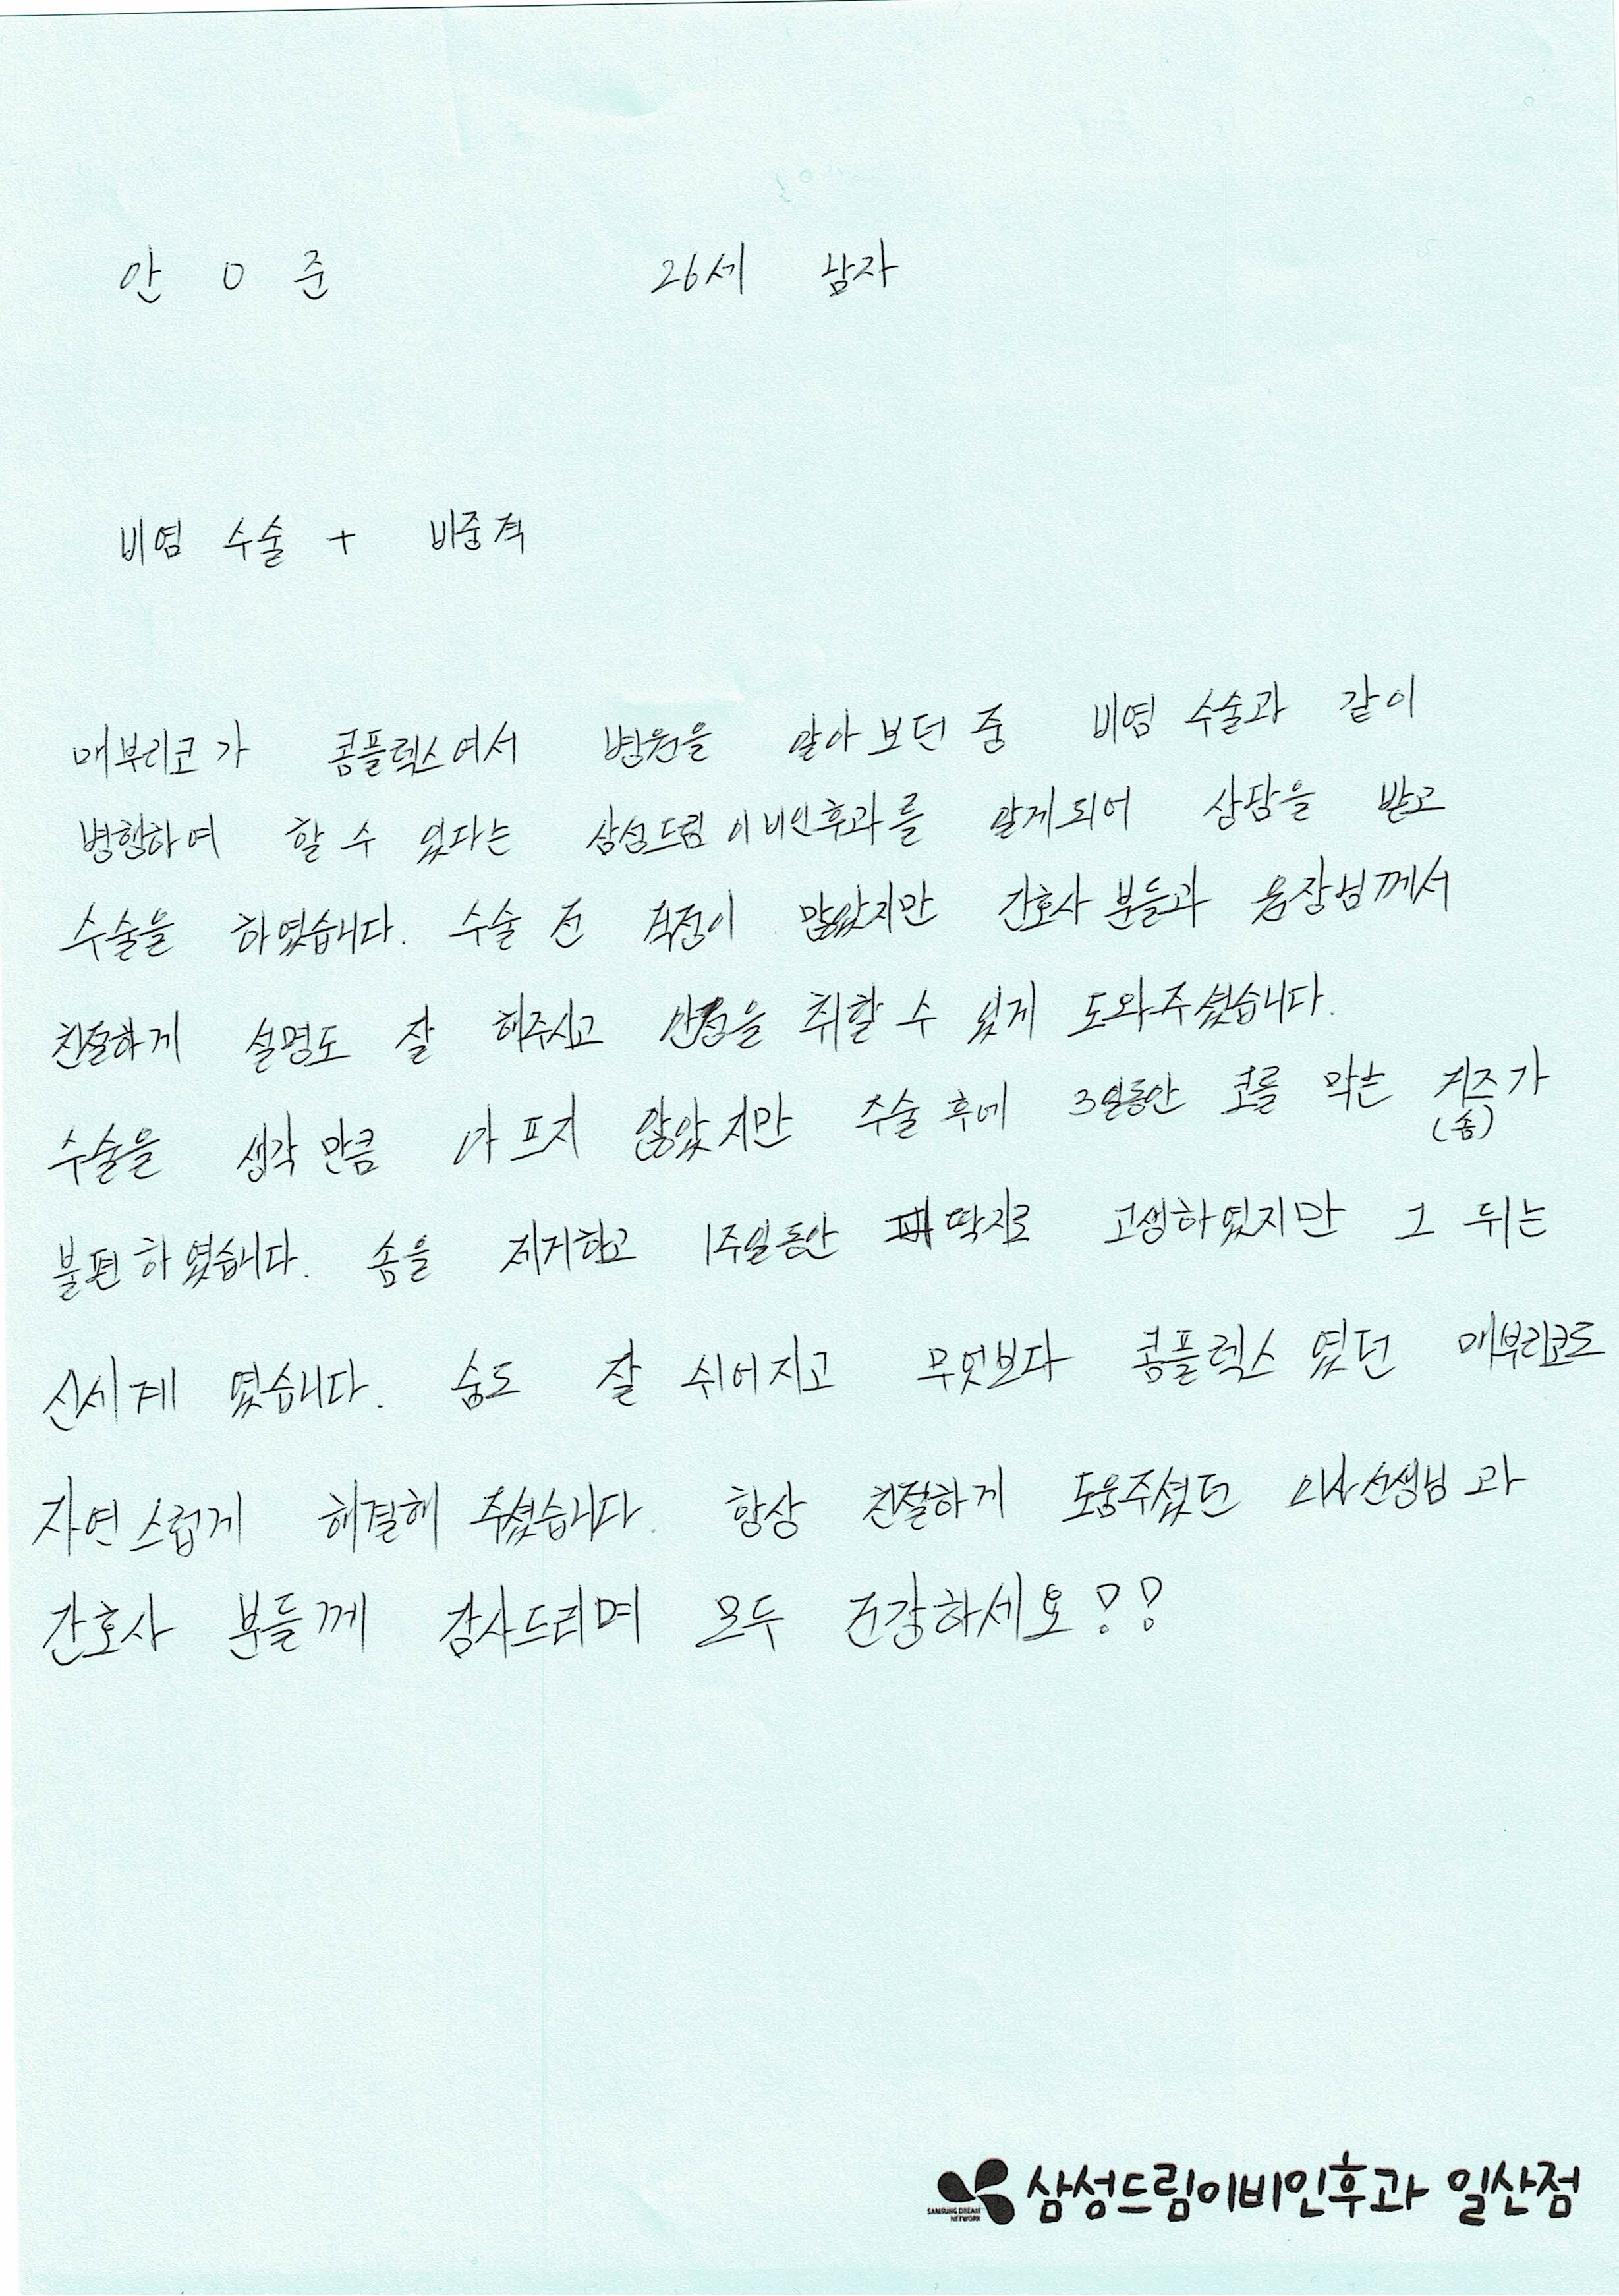 안 O 준 26세 남자
비염 수술 + 비중격
매부리코가 콤플렉스여서 병원을 알아보던 중 비염 수술과 같이
병행하여 할 수 있다는 삼성드림이비인후과를 알게되어 상담을 받고
수술을 하였습니다. 수술 전 걱정이 많았지만 간호사 분들과 원장님께서
친절하게 설명도 잘 해주시고 안정을 취할 수 있게 도와주셨습니다.
수술을 생각만큼 아프지 않았지만 수술후에 3일동안 코를 막는 거즈가
(솜)
불편하였습니다. 솜을 제거하고 1주일동안 딱지로 고생하였지만 그 뒤는
신세계였습니다. 숨도 잘 쉬어지고 무엇보다 콤플렉스였던 매부리코도
자연스럽게 해결해 주셨습니다. 항상 친절하게 도움주셨던 의사선생님과
간호사 분들께 감사드리며 모두 건강하세요!!
SAMSUNG DREAM
NETWORK
삼성드림이비인후과 일산점